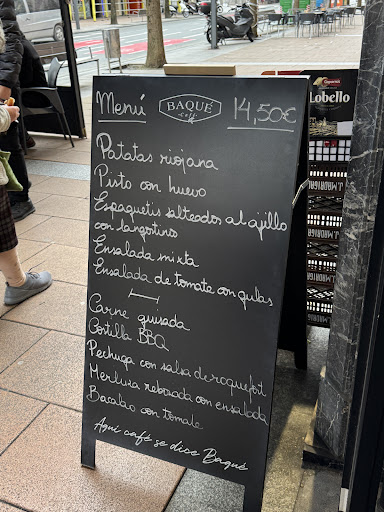 Menú
BAQUÉ
Café
14,50€
Lobello
Patatas riojana
Pisto con huevo
Espaguetis salteados al ajillo
con langostino
Ensalada mixta
Ensalada de tomate con gulas
Carne guisada
Costilla BBQ
Pechuga con salsa de roquefort
Merluza rebozada con ensalada
Bacalao con tomate
Aquí café se dice Baqué